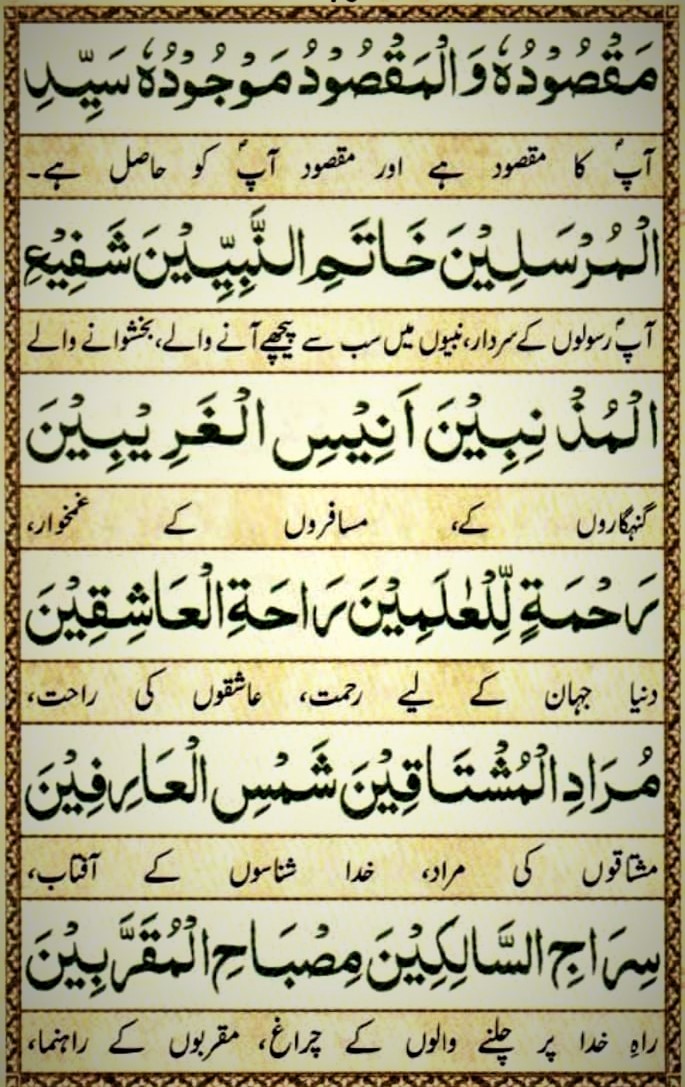 مَقْصُوْدُهٗ وَالْمَقْصُوْدُ مَوْجُوْدُهٗ سَيِّدِ
آپؐ کا مقصود ہے اور مقصود آپؐ کو حاصل ہے۔
الْمُرْسَلِيْنَ خَاتَمِ النَّبِيِّيْنَ شَفِيْعِ
آپؐ رسولوں کے سردار، نبیوں میں سب سے پیچھے آنے والے، بخشوانے والے
الْمُذْنِبِيْنَ اَنِيْسِ الْغَرِيْبِيْنَ
گنہگاروں کے، مسافروں کے غمخوار،
رَحْمَةٍ لِّلْعٰلَمِيْنَ رَاحَةِ الْعَاشِقِيْنَ
دنیا جہان کے لیے رحمت، عاشقوں کی راحت،
مُرَادِ الْمُشْتَاقِيْنَ شَمْسِ الْعَارِفِيْنَ
مشتاقوں کی مراد، خدا شناسوں کے آفتاب،
سِرَاجِ السَّالِكِيْنَ مِصْبَاحِ الْمُقَرَّبِيْنَ
راہِ خدا پر چلنے والوں کے چراغ، مقربوں کے راہنما،